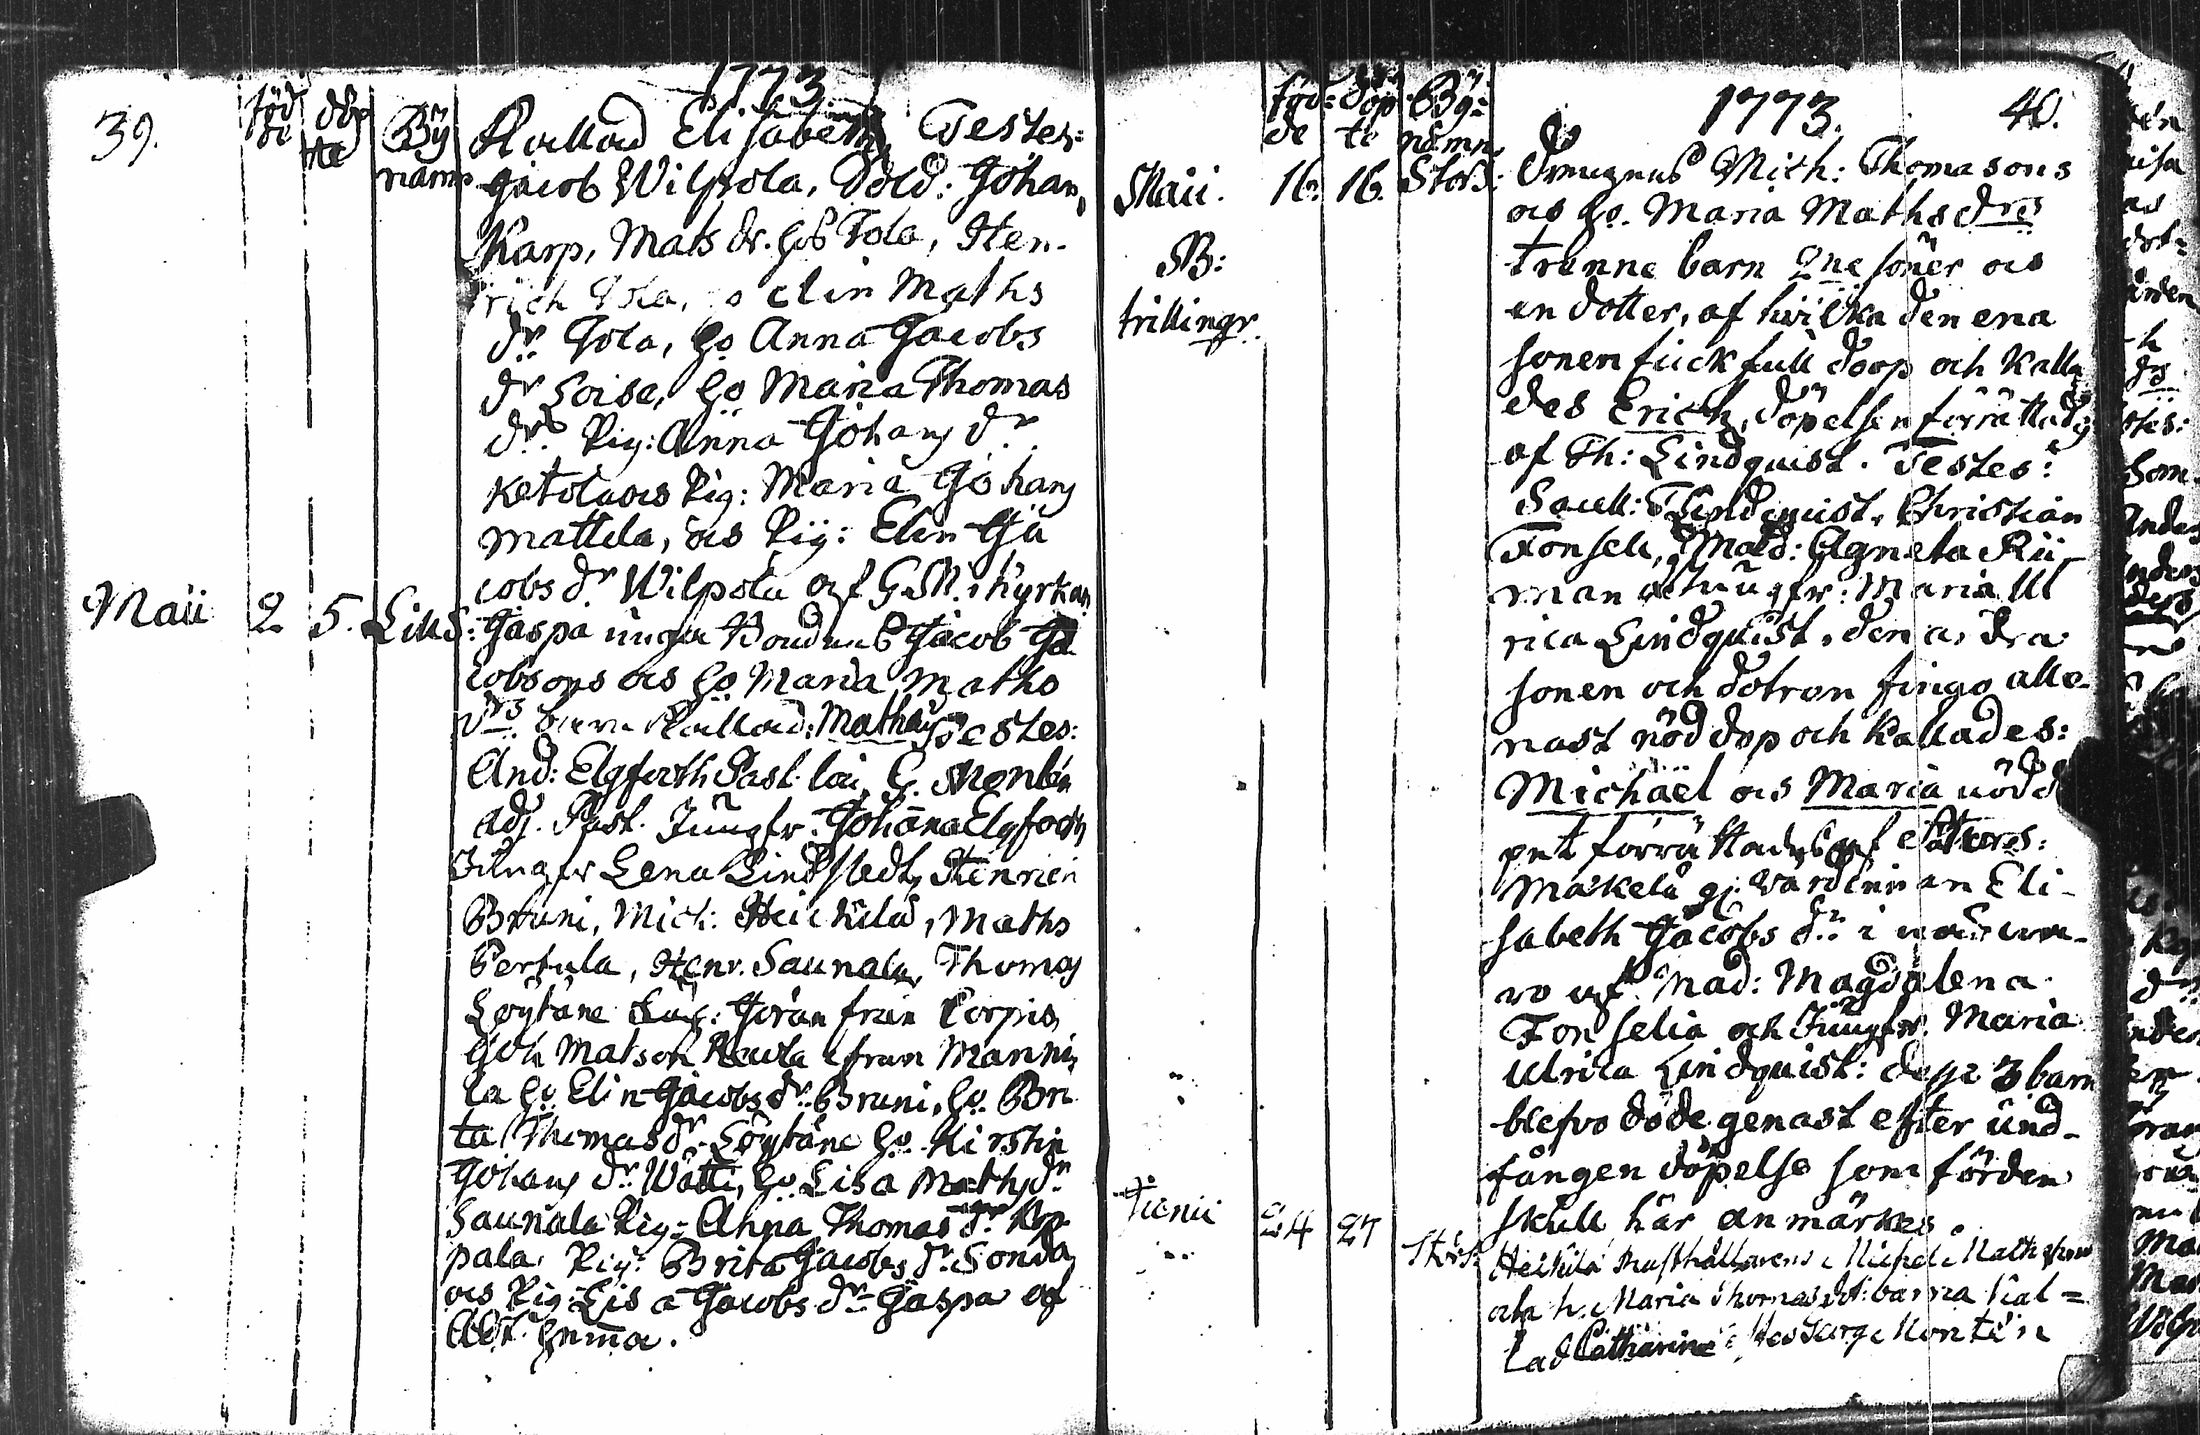 1773
39.
föd
de
döp
te
By
namn
Kallad Elisabeth, Testes:
Jacob Wilpola, Sold: Johan
Karp, Mats dr. hos Tola, Hen-
rich Tola, elin Maths
dr Tola, ho Anna Jacobs
dr Loisa, ho Maria Thomas
dr Pig: Anna Johans dr
Ketola ocs Pig: Maria Johans
mattila, ocs Pig: Elin Ja
cobs dr Wilpola af G. M. i kyrkan
Maii 2 5. Lill: Jaspa unga Bondens Jacob Ja
cobsons ocs ho Maria maths
drs barn Kallad: Mathias Testes:
And: Elgforth Past. loci, G. Monten
Adj. Past. Jungfr. Johana Elgforth
Jungfr Lena Lindstedt, Henrich
Bruni, Mich: Heickilä, Maths
Pertula, Henr. Saunala, Thomas
Löytäne Göran från Corpis,
Joh Matson Rauta från Manni,
la ho Elin Jacobs dr Bruni, ho Bri
ta Thomas dr Löytäne ho Kirstin
Johans dr Wätti, ho Lisa Maths dr
Saunala Pig: Anna Thomas dr
pala, Pig: Brita Jacobs dr Sonda
ocs Pig: Lisa Jacobs dr Jaspa af
1773. 40.
föd=
de
döp
te
By=
namn
Maii. 16. 16. Stor: Mich: Thomasons
ocs ho. Maria Maths drs
NB: trenne barn 2ne söner ocs
trillingr. en dotter, af hvilka den ena
sonen fick full doop och kalla
des Erich, döpelsen förrättades
af Th: Lindquist. Testes:
Sacell: Lindquist, Christian
Fonseli, Mad: Agneta Rii
man och jungfr: Maria Ul
rica Lindquist, den andra
sonen och dotron fingo alle-
nast nöddop och kallades:
Michäel ocs Maria nödd
pet förrättades af
Mäkelä gj. värdinnan Eli-
sabeth Jacobs dr i
ro af Mad: Magdalena
Fonselia och Jungfr. Maria
Ulrica Lindquist: desse 3 barn
blefvo döde genast efter und-
fången döpelse som förden
skull här anmärkes.
Junii 24 27 Heikilä Rusthållarens Michel Mathsons
och h. Maria Thomasdot. barna kal=
lad Catharina: George Montén